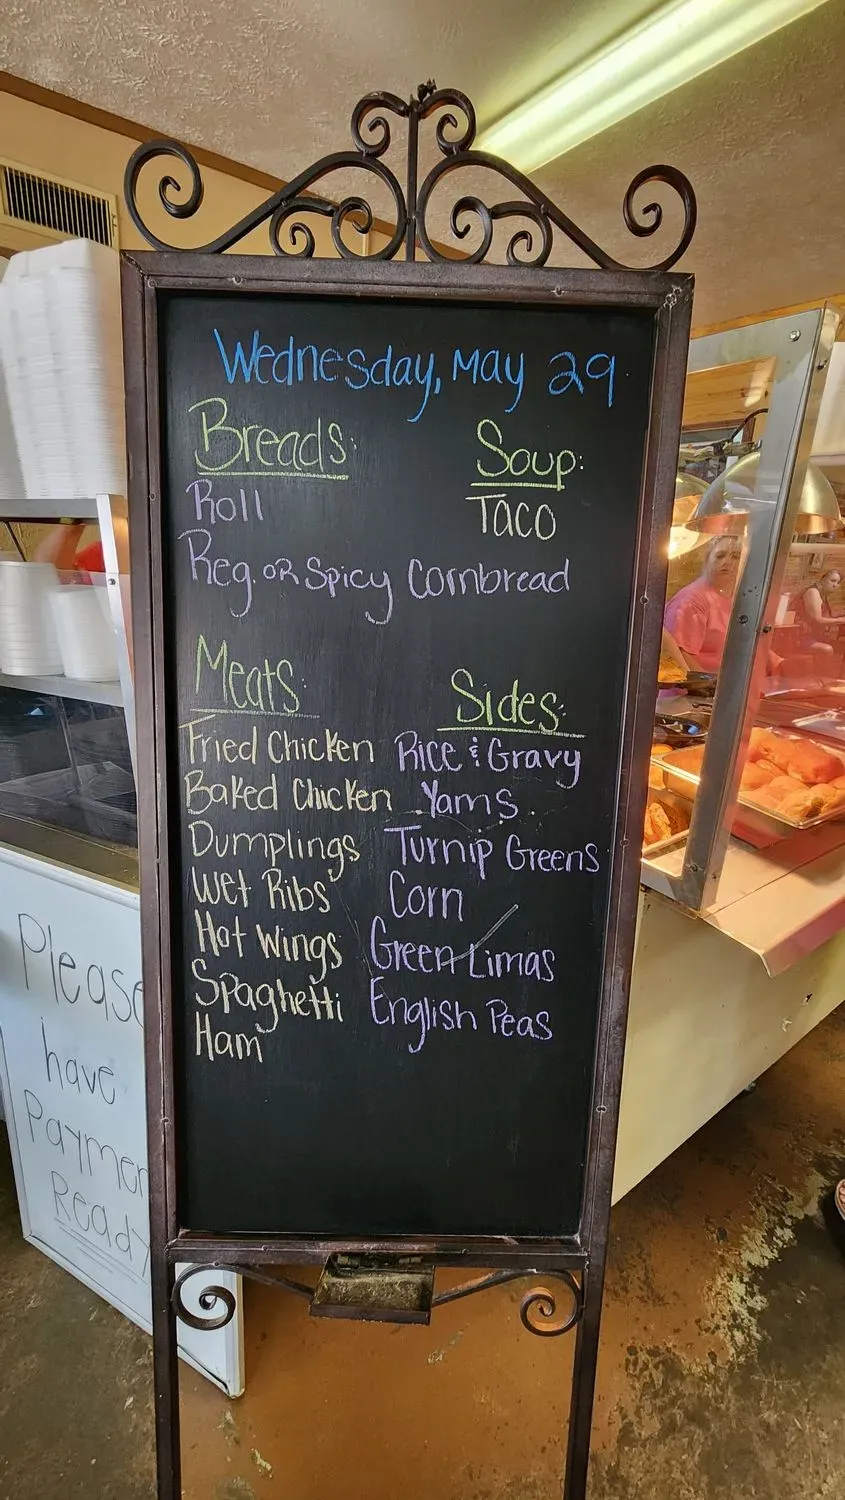 Wednesday, May 29
Breads:
Roll
Reg. or Spicy Cornbread
Soup:
Taco
Meats:
Fried Chicken
Baked Chicken
Dumplings
Wet Ribs
Hot Wings
Spaghetti
Ham
Sides:
Rice & Gravy
Yams
Turnip Greens
Corn
Green Limas
English Peas
Please
have
Paymen
Ready